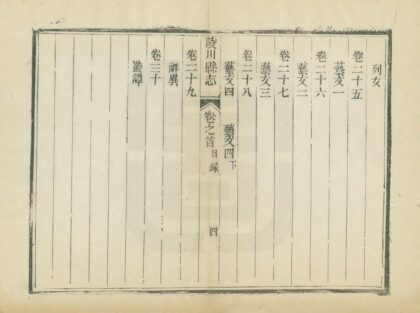 列女
卷二十五
藝文一
卷二十六
藝文二
卷二十七
藝文三
卷二十八
藝文四 藝文四下
陵川縣志 卷之首 目錄 四
卷二十九
祥異
卷三十
叢譚